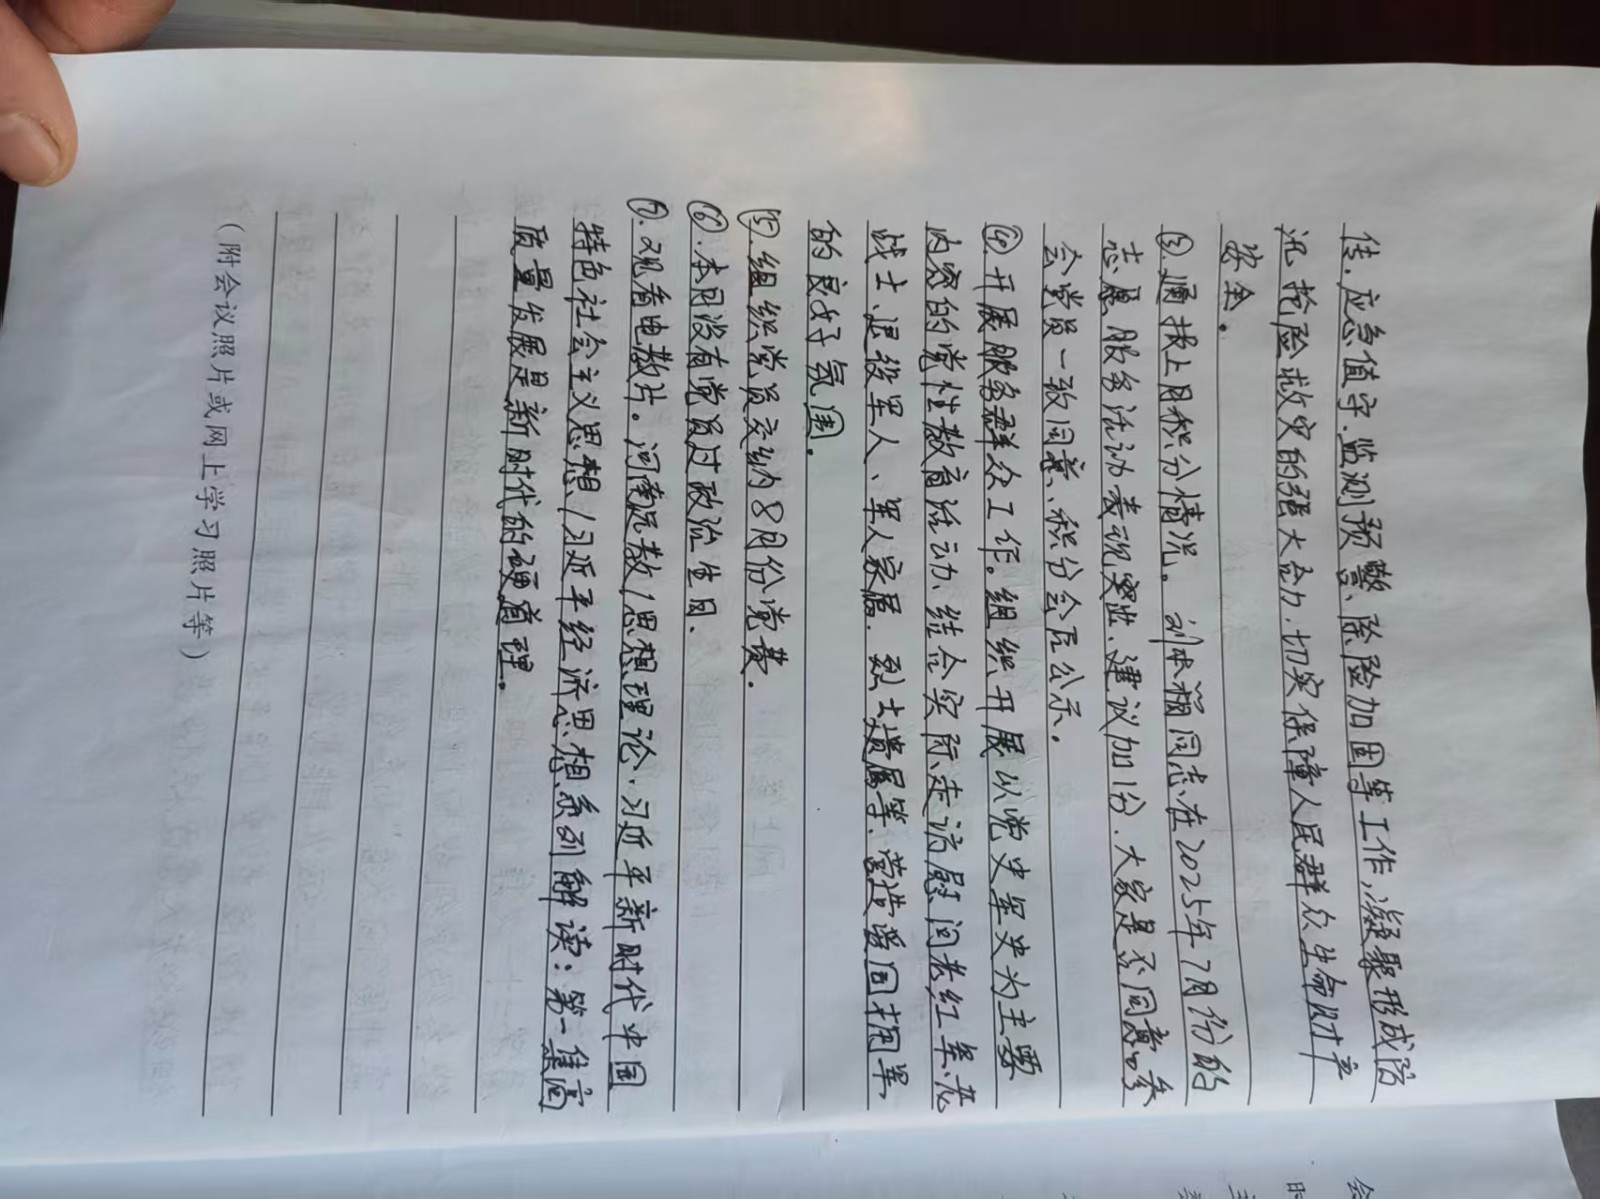 传、应急值守、监测预警、除险加固等工作,凝聚形成防
汛抢险救灾的强大合力,切实保障人民群众生命财产
安全.
③.通报上月积分情况。刘本福同志在2025年7月份的
志愿服务活动表现突出,建议加1分.大家是否同意?参
会党员一致同意,积分会后公示.
④.开展服务群众工作。组织开展以党史军史为主要
内容的党性教育活动、结合实际走访慰问老红军、老
战士、退役军人、军人家属.烈士遗属等、营造爱国拥军
的良好氛围.
⑤.组织党员交纳8月份党费.
⑥.本月没有党员过政治生日.
⑦.观看电教片。河南党教/思想理论.习近平新时代中国
特色社会主义思想/习近平经济思想系列解读:第一集高
质量发展是新时代的硬道理.
(附会议照片或网上学习照片等)